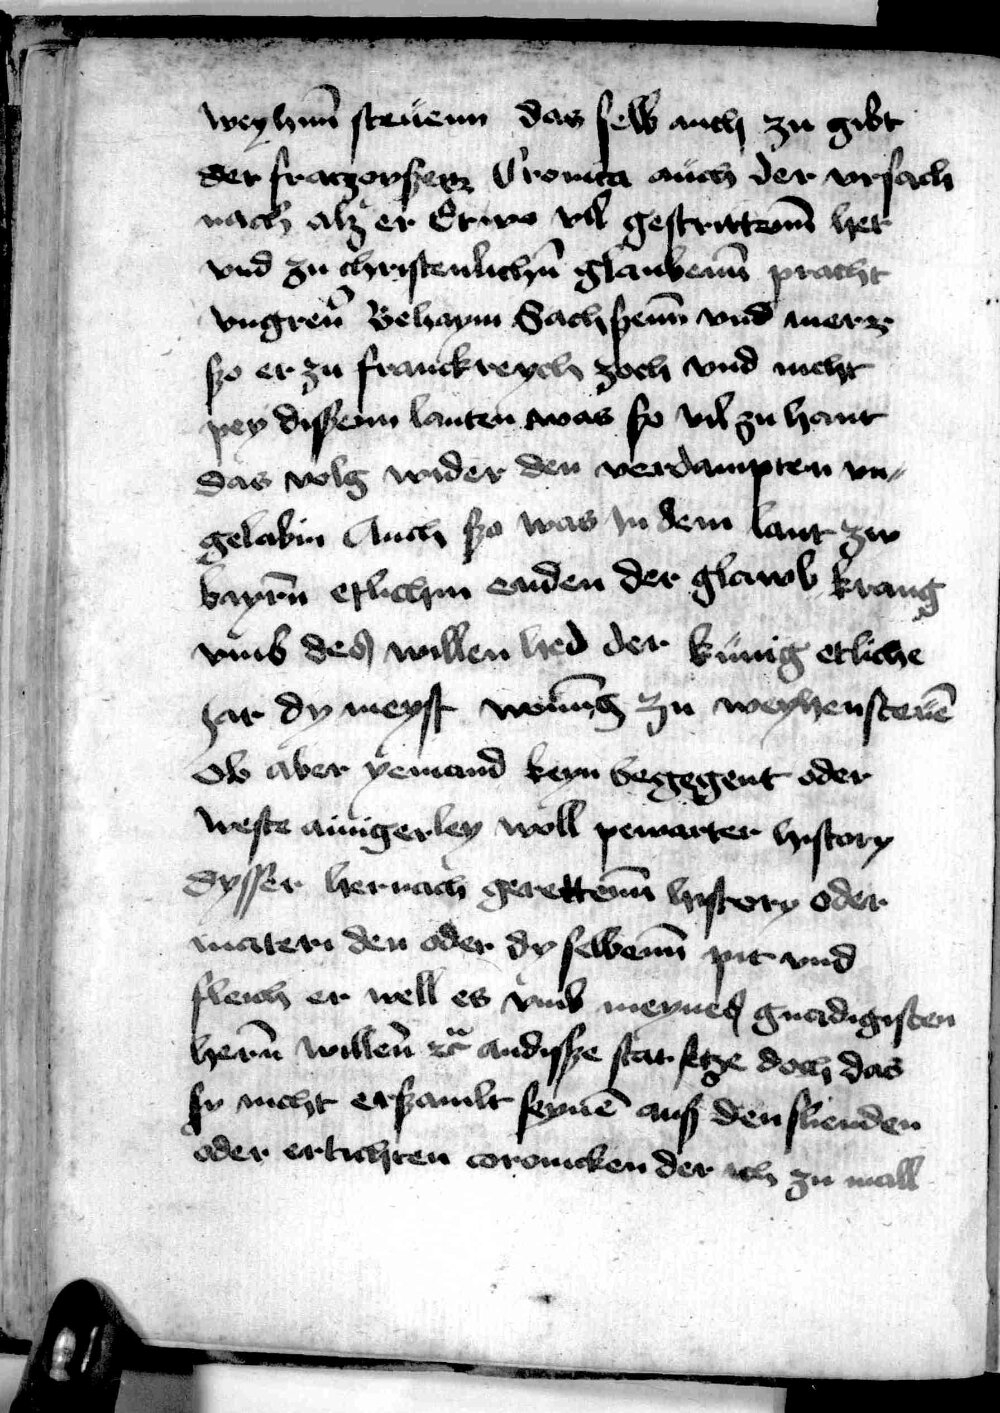 weyhm̄ steuenn das selb auch zu gibt
der fraczoyszen Cronica auch der vrsach
nach alz er Etwo vil gestrittenn̄ het
vnd zu christenlichn̄ glaubenn̄ pracht
vngren̄ Behaym Sachszenn̄ vnd merr
szo er zu franckreych zoch vnd nicht
pey dissenn lanten was so vil zu hant
das volg wider den verdampten vn-
gelabin Auch szo was in dem lant zw
bayrn̄ etlichm enden der glawb krang
vmb des willen hed der künig etliche
Jar dy meyst wonūg zu weyhensteuē
Ob aber yemand keyn begegent oder
weste ainigerley woll pewarter hystory
dysser hernach gerettenn̄ hystory oder
materi den oder dy selbenn̄ pit vnd
fleich er well es vmb meynes gnadigisten
hern̄ willen̄ etc an disze stat setze doch das
sy nicht erszamlt seynē aus den flienden
oder ertichten coronicken der ich zu mall